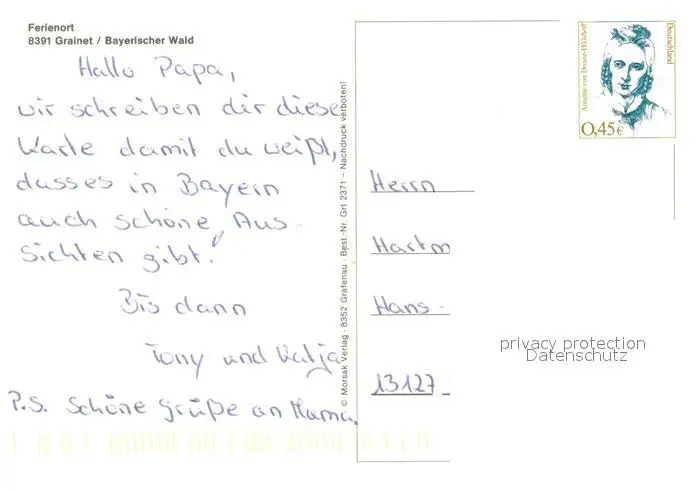 Ferienort
8391 Grainet / Bayerischer Wald
Hallo Papa,
wir schreiben dir diese
Karte damit du weißt,
dass es in Bayern
auch schöne Aus-
sichten gibt.
Bis dann
Tony und Katja
P.S. Schöne Grüße an Mama.
© Morsak Verlag · 8352 Grafenau · Best.-Nr. Grt 2371 – Nachdruck verboten!
Annette von Droste-Hülshoff
Deutschland
0,45€
Herrn
Hartm
Hans-
13127
privacy protection
Datenschutz